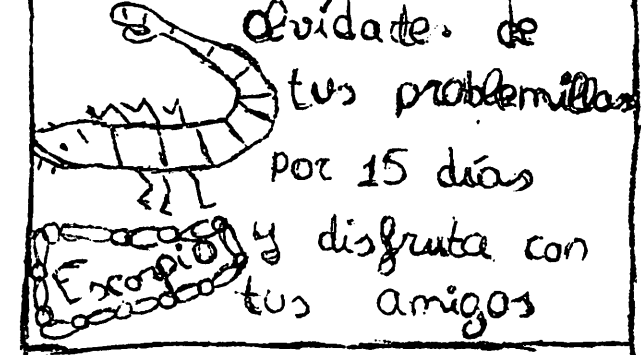 Olvídate. de
tus problemillas
por 15 días
y disfruta con
tus amigos
Escorpio